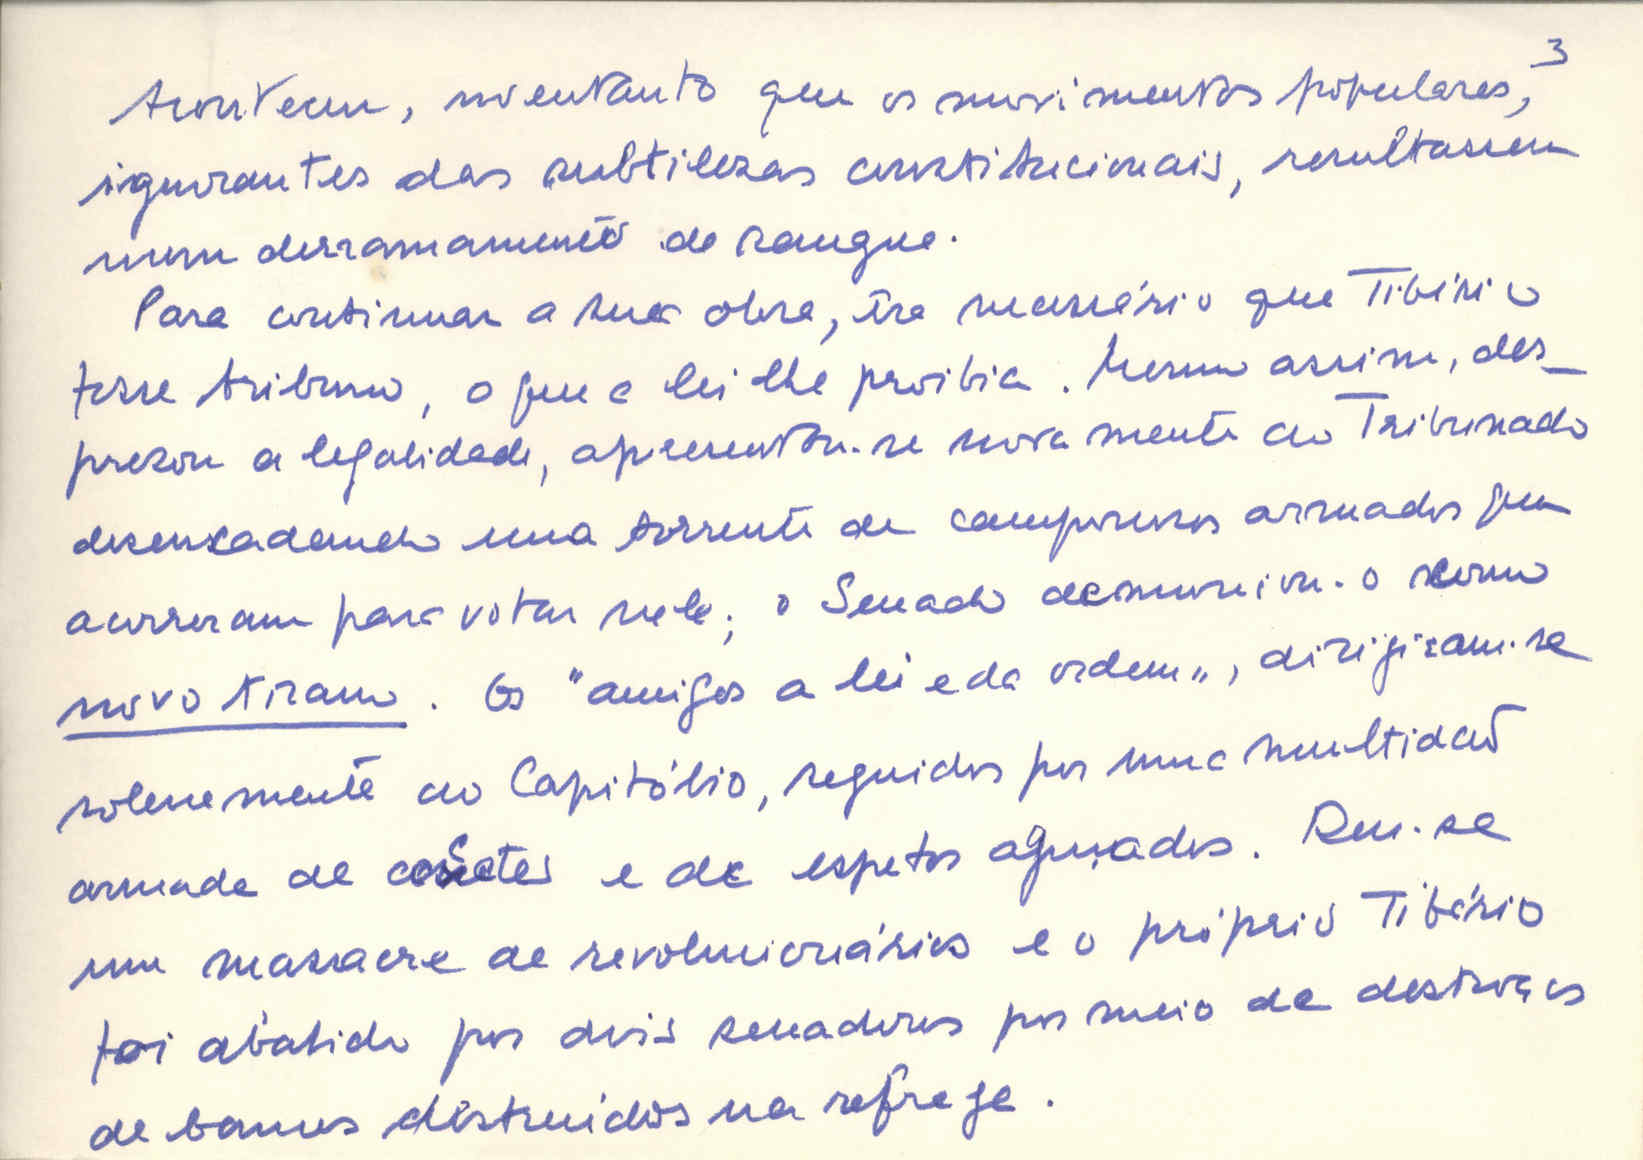 3
Aconteceu, no entanto que os movimentos populares,
ignorantes das subtilezas constitucionais, resultassem
num derramamento de sangue.
Para continuar a sua obra, era necessário que Tibério
fosse tribuno, o que a lei lhe proibia. Mesmo assim, des_
prezou a legalidade, apresentou-se novamente ao Tribunado
desencadeando uma torrente de camponeses armados que
acorreram para votar nele; o Senado denunciou-o como
novo tirano. Os "amigos a lei e da ordem", dirigiram-se
solenemente ao Capitólio, seguidos por uma multidão
armada de e de espetos aguçados. Deu-se
um massacre de revolucionários e o próprio Tibério
foi abatido por dois senadores por meio de destroços
de bancos destruídos na refrega.